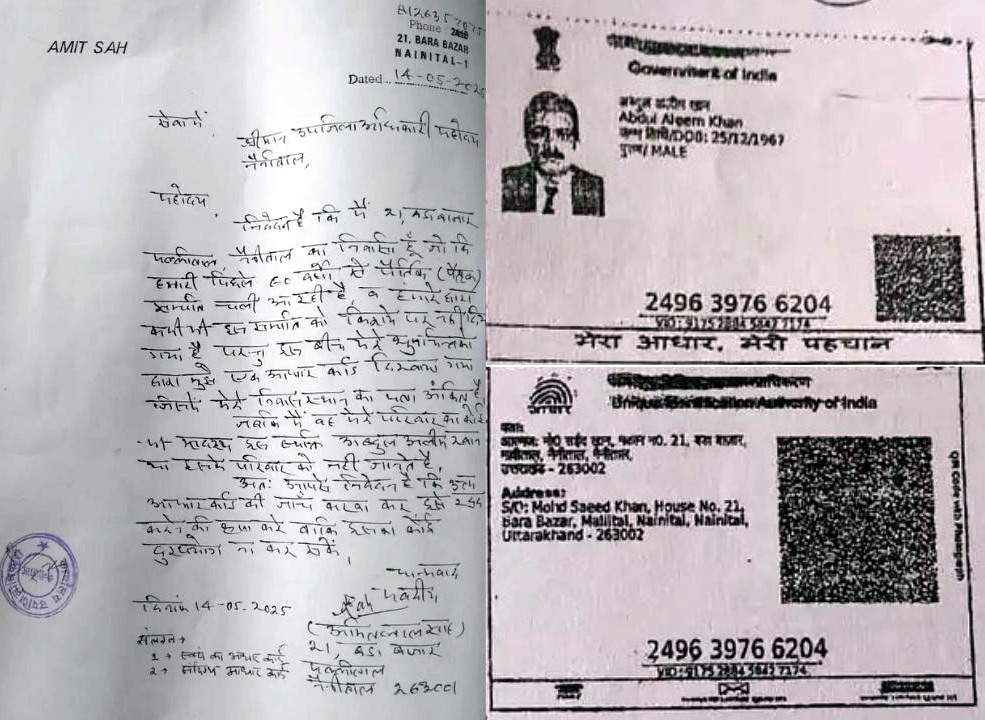 AMIT SAH
Phone :
21, BARA BAZAR
NAINITAL-1
Dated.. 14-05-2025
सेवा में
श्रीमान उपजिलाअधिकारी महोदय
नैनीताल,
महोदय,
निवेदन है कि मैं 21, बड़ा बाजार
मल्लीताल, नैनीताल का निवासी हूँ जो कि
हमारी पिछले 60 वर्षों से पैतिक (पैतृक)
सम्पति चली आ रही है, व हमारे द्वारा
कभी भी इस सम्पति को किराये पर नहीं दिया
गया है परन्तु इस बीच मेरे
द्वारा मुझे एक आधार कार्ड दिखाया गया
जिसमें मेरे निवास स्थान का पता अंकित है
जबकि मैं वह मेरे परिवार का कोई
भी सदस्य इस व्यक्ति अब्दुल अलीम खान
या इसके परिवार को नहीं जानते है,
अतः आपसे निवेदन है कि
आधार कार्ड की जाँच करवा कर इसे रद्द
करने की कृपा करें ताकि इसका कोई
दुरुपयोग ना कर सके,
धन्यवाद
भवदीय
दिनांक 14-05-2025
(अमित लाल साह)
21, बड़ा बाजार
मल्लीताल
नैनीताल 263001
संलग्न →
1 → स्वयं का आधार कार्ड
2 → आधार कार्ड
Government of India
अब्दुल अलीम खान
Abdul Aleem Khan
जन्म तिथि/DOB: 25/12/1967
पुरुष/ MALE
2496 3976 6204
VID : 9175 2884 5842 7174
मेरा आधार, मेरी पहचान
Unique Identification Authority of India
आधार
पता:
आत्मज: मो0 सईद खान, मकान न0. 21, बड़ा बाजार,
मल्लीताल, नैनीताल, नैनीताल,
उत्तराखण्ड - 263002
Address:
S/O: Mohd Saeed Khan, House No. 21,
Bara Bazar, Mallital, Nainital, Nainital,
Uttarakhand - 263002
2496 3976 6204
VID : 9175 2884 5842 7174